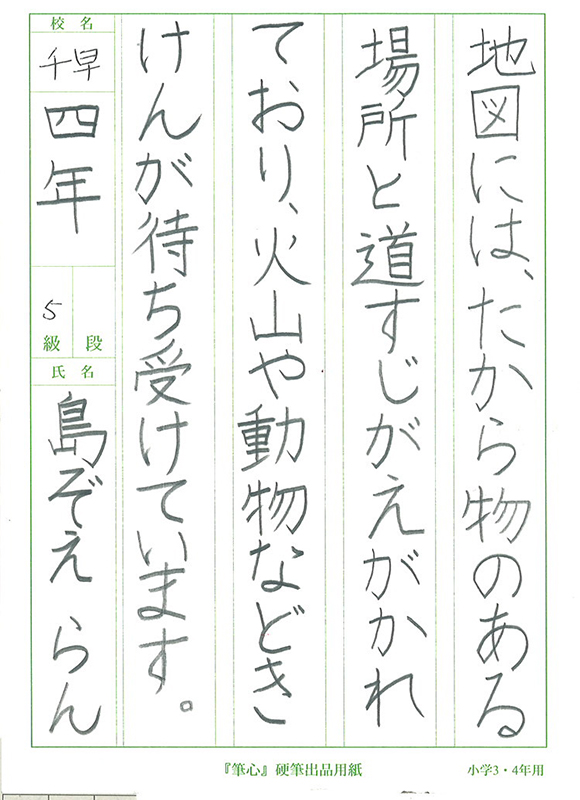 地図には、たから物のある
場所と道すじがえがかれ
ており、火山や動物などき
けんが待ち受けています。
校名
千早
四年
5
級
段
氏名
島ぞえ らん
『筆心』硬筆出品用紙
小学3・4年用